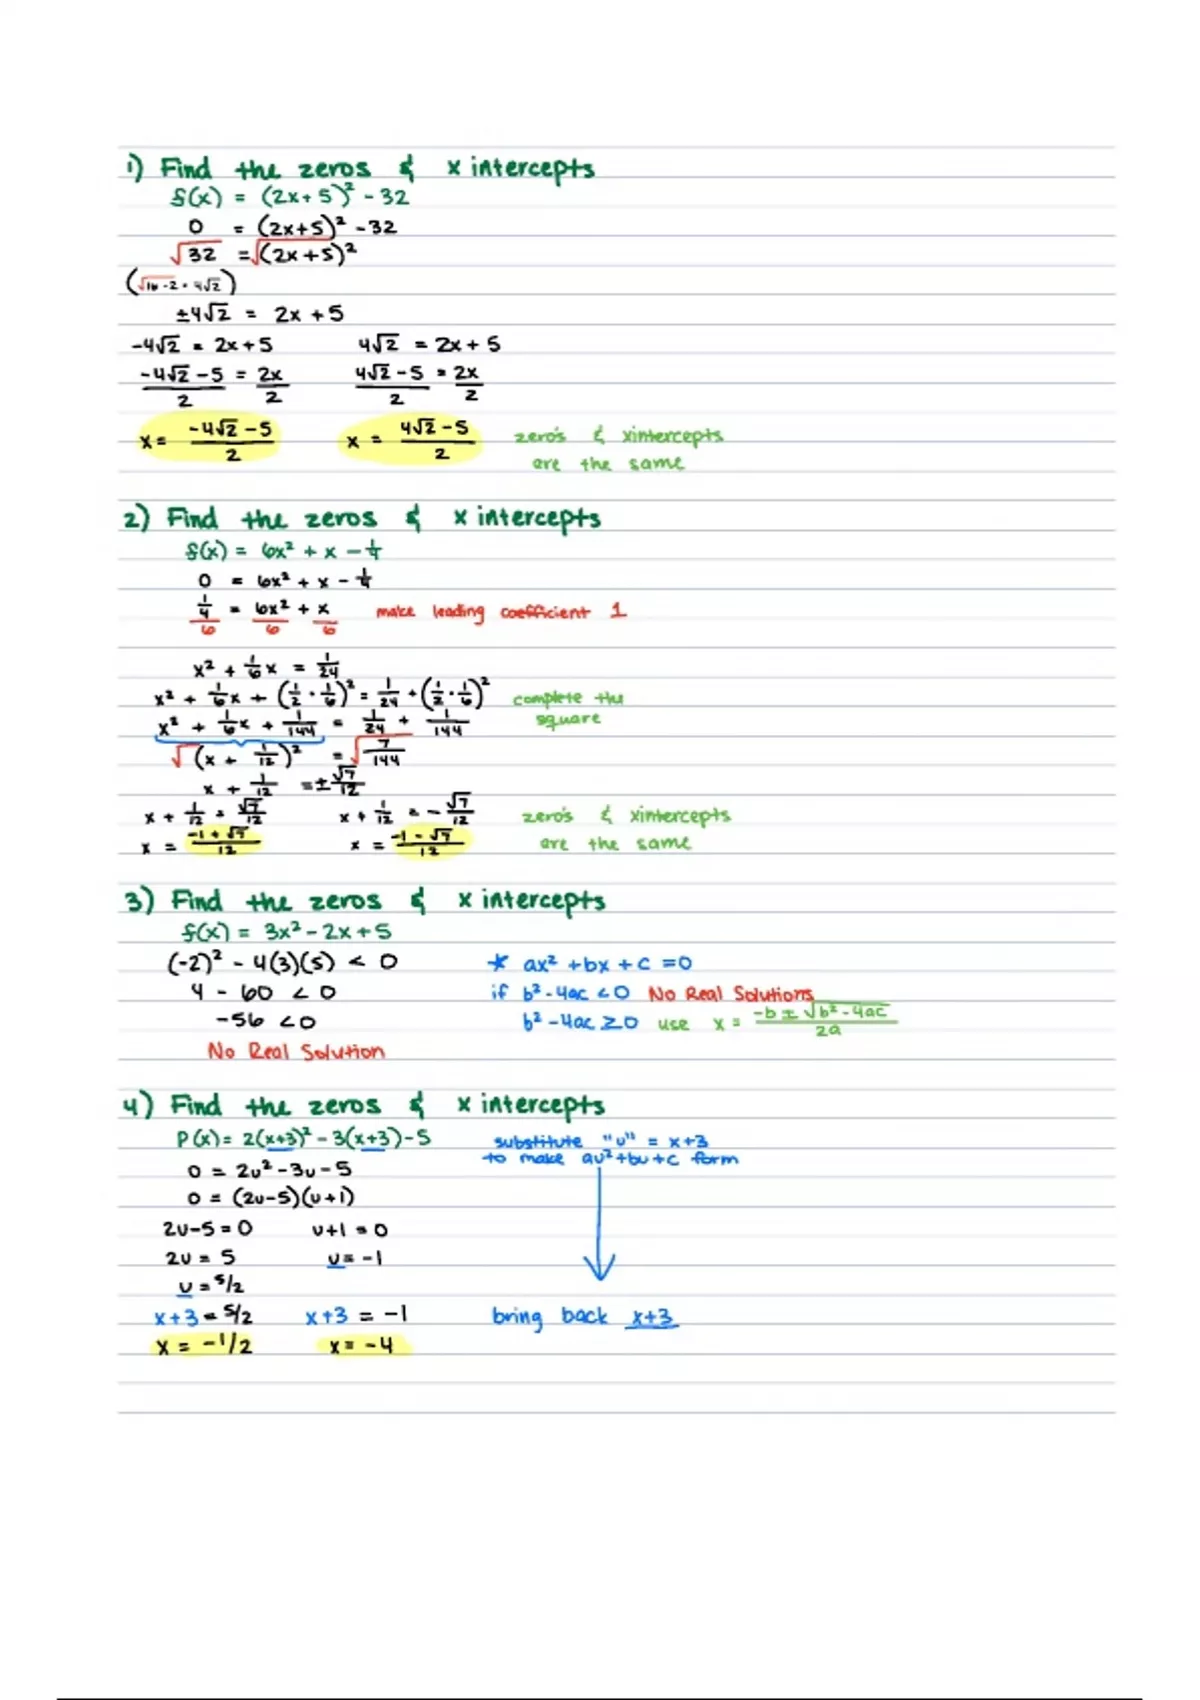 1) Find the zeros & x intercepts
f(x) = (2x+5)² - 32
0 = (2x+5)² - 32
√32 = √(2x+5)²
(√16·2 = 4√2)
±4√2 = 2x + 5
-4√2 = 2x+5    4√2 = 2x+5
(-4√2 - 5)/2 = 2x/2    (4√2 - 5)/2 = 2x/2
x = (-4√2 - 5)/2    x = (4√2 - 5)/2    zero's & xintercepts
are the same
2) Find the zeros & x intercepts
f(x) = 6x² + x - 1/4
0 = 6x² + x - 1/4
(1/4)/6 = 6x²/6 + x/6    make leading coefficient 1
x² + 1/6 x = 1/24
x² + 1/6 x + (1/2 · 1/6)² = 1/24 + (1/2 · 1/6)²    complete the
x² + 1/6 x + 1/144 = 1/24 + 1/144    square
√(x + 1/12)² = √7/144
x + 1/12 = ±√7/12
x + 1/12 = √7/12    x + 1/12 = -√7/12    zero's & xintercepts
x = (-1+√7)/12    x = (-1-√7)/12    are the same
3) Find the zeros & x intercepts
f(x) = 3x² - 2x + 5
(-2)² - 4(3)(5) < 0    * ax² + bx + c = 0
4 - 60 < 0    if b² - 4ac < 0 No Real Solutions
-56 < 0    b² - 4ac ≥ 0 use x = (-b ± √b² - 4ac)/2a
No Real Solution
4) Find the zeros & x intercepts
P(x) = 2(x+3)² - 3(x+3) - 5    substitute "u" = x+3
0 = 2u² - 3u - 5    to make au²+bu+c form
0 = (2u-5)(u+1)
2u-5 = 0    u+1 = 0
2u = 5    u = -1
u = 5/2
x+3 = 5/2    x+3 = -1    bring back x+3
x = -1/2    x = -4